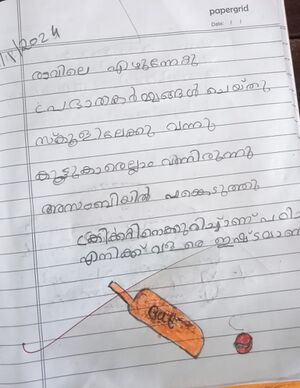 papergrid
Date: / /
1/1/2024
രാവിലെ എഴുന്നേറ്റു
പ്രഭാതകർമ്മങ്ങൾ ചെയ്തു
സ്കൂളിലേക്കു വന്നു
കൂട്ടുകാരെല്ലാം വന്നിരുന്നു
അസംബ്ലിയിൽ പങ്കെടുത്തു
ക്രിക്കറ്റിനെക്കുറിച്ചാണ്
എനിക്ക് വള രെ ഇഷ്ടമാണ്